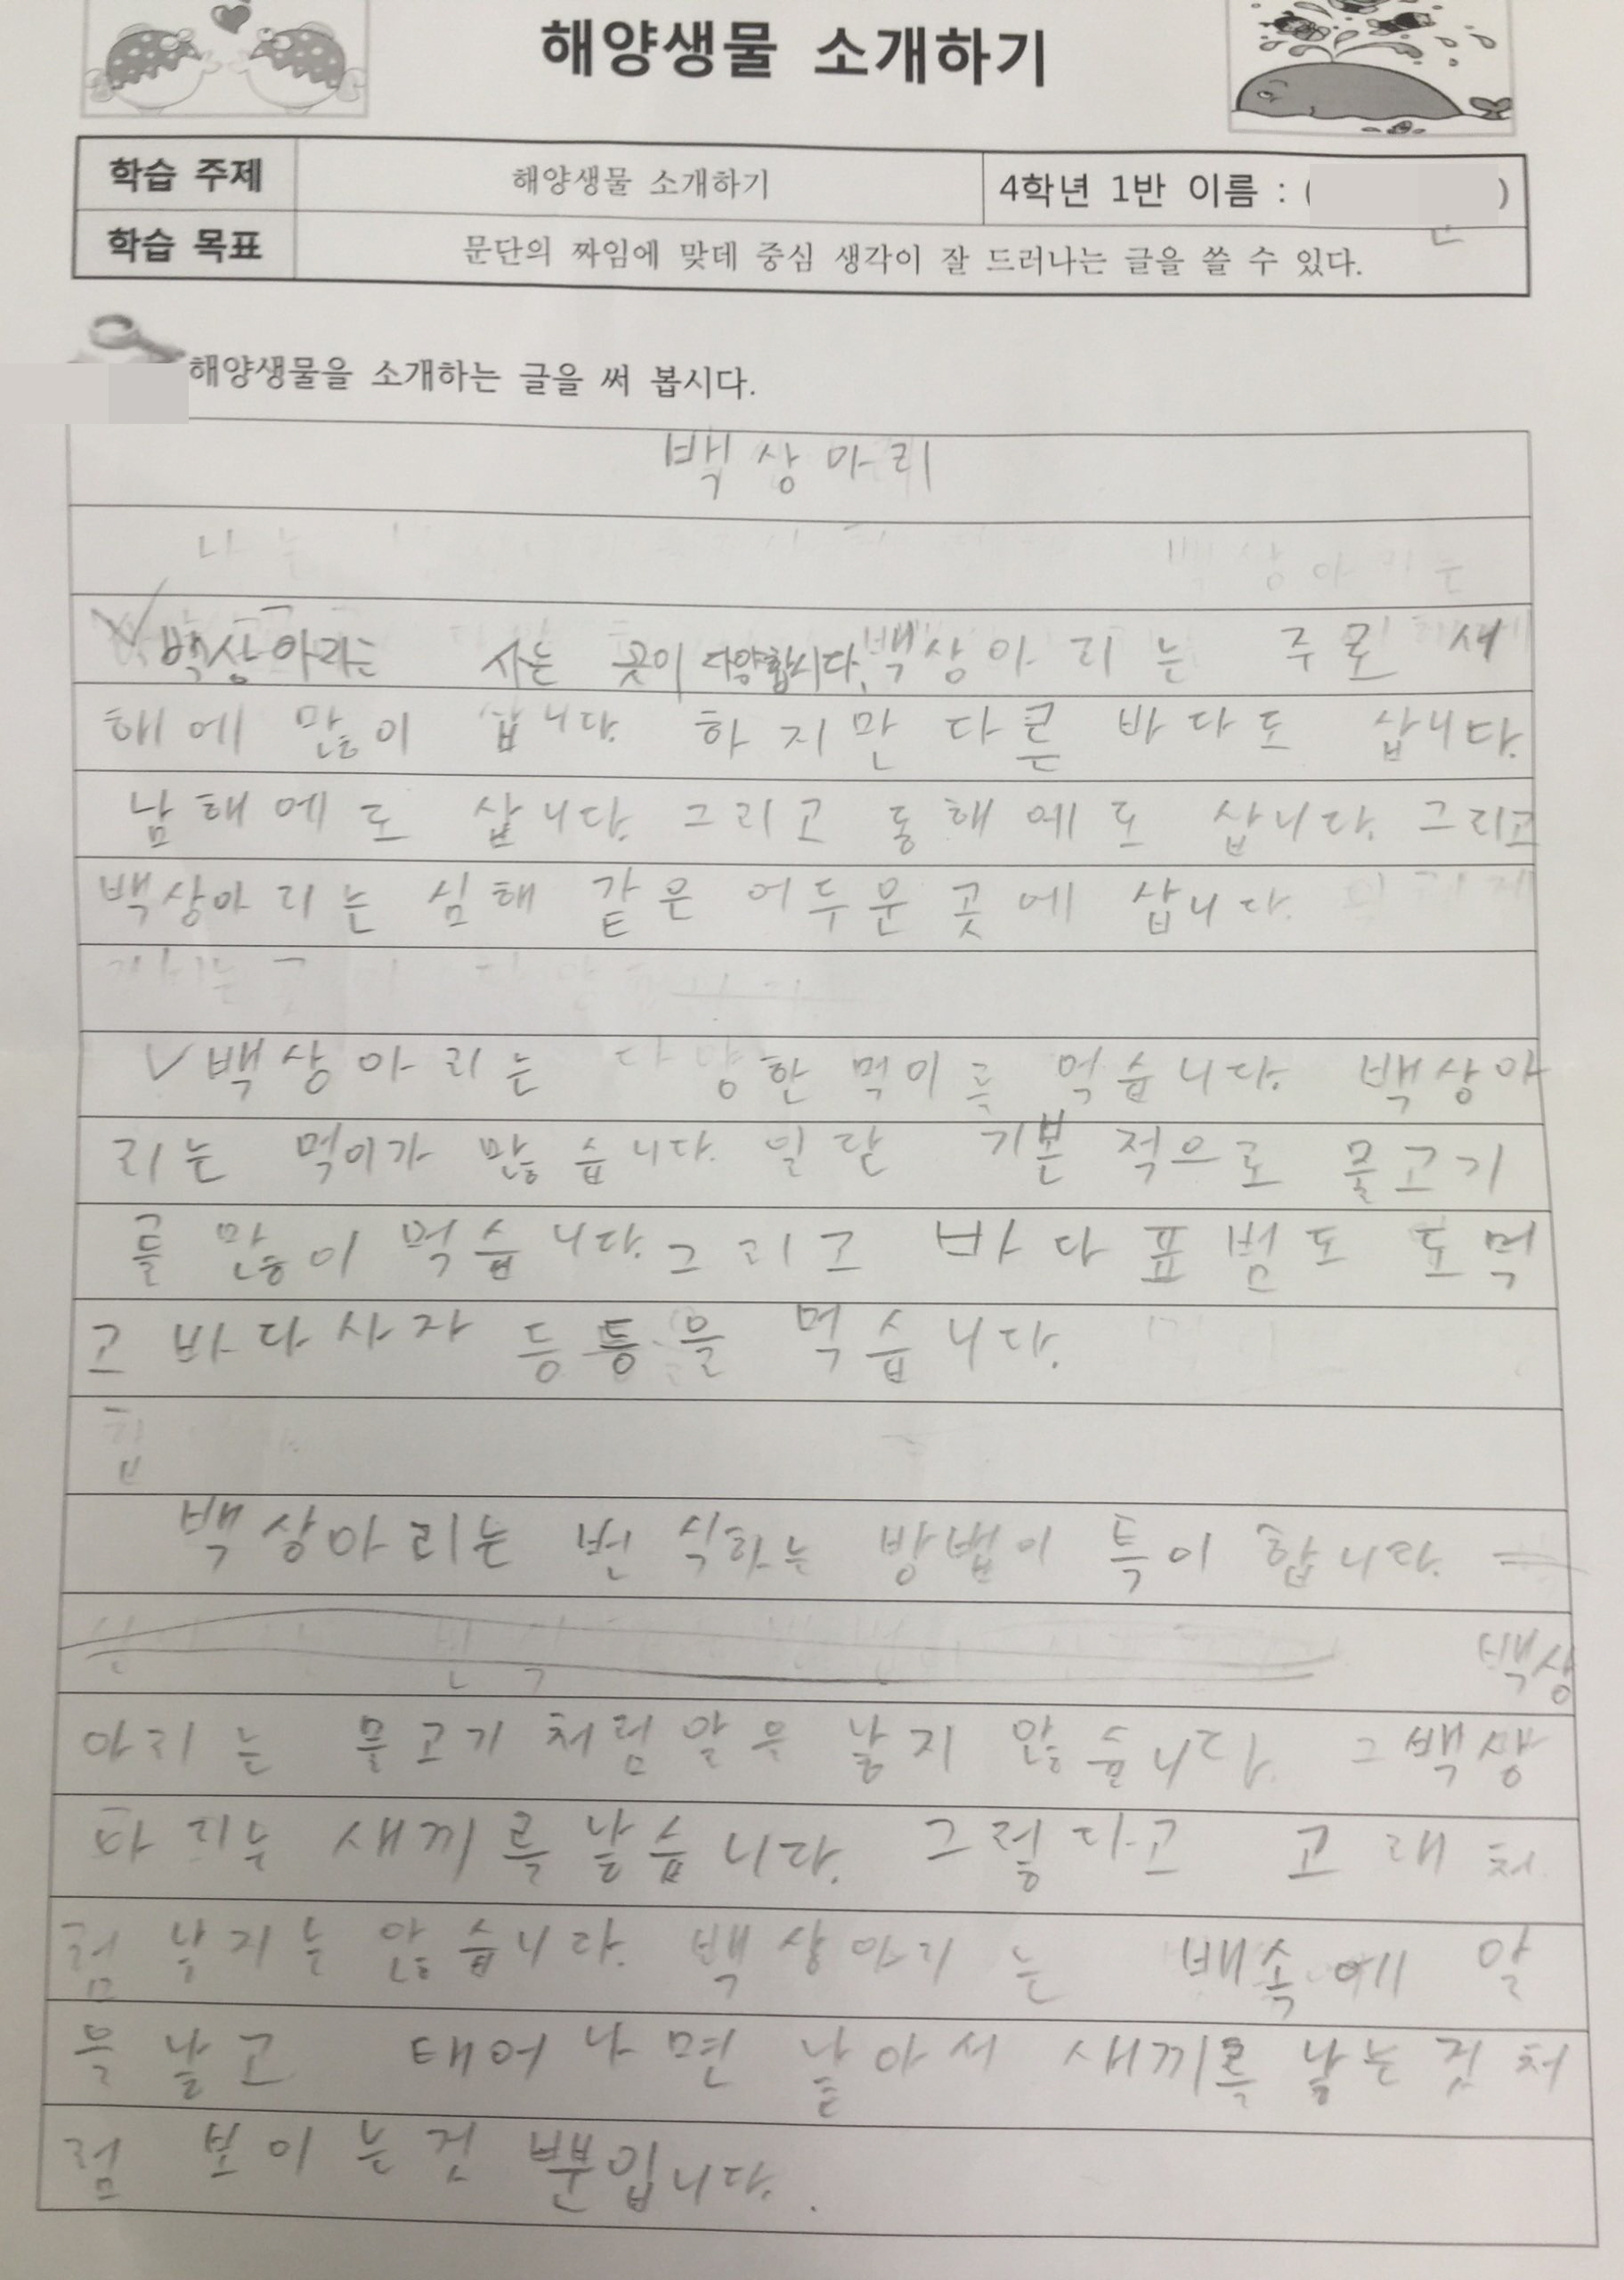 해양생물 소개하기
학습 주제 해양생물 소개하기 4학년 1반 이름 : ( )
학습 목표 문단의 짜임에 맞데 중심 생각이 잘 드러나는 글을 쓸 수 있다.
해양생물을 소개하는 글을 써 봅시다.
백상아리
나는 백상아리는
백상아리는 사는 곳이 다양합시다. 백상아리는 주로 서
해에 많이 삽니다. 하지만 다른 바다도 삽니다.
남해에도 삽니다. 그리고 동해에도 삽니다. 그리고
백상아리는 심해 같은 어두운 곳에 삽니다.
백상아리는 다양한 먹이를 먹습니다. 백상아
리는 먹이가 많습니다. 일단 기본적으로 물고기
를 많이 먹습니다. 그리고 바다표범도 도먹
고 바다사자 등등을 먹습니다.
백상아리는 번식하는 방법이 특이 합니다.
백상
아리는 물고기처럼 알을 낳지 않습니다. 그백상
아리는 새끼를 낳습니다. 그렇다고 고래처
럼 낳지는 않습니다. 백상아리는 배속에 알
을 낳고 태어나면 낳아서 새끼를 낳는것처
럼 보이는것 뿐입니다.